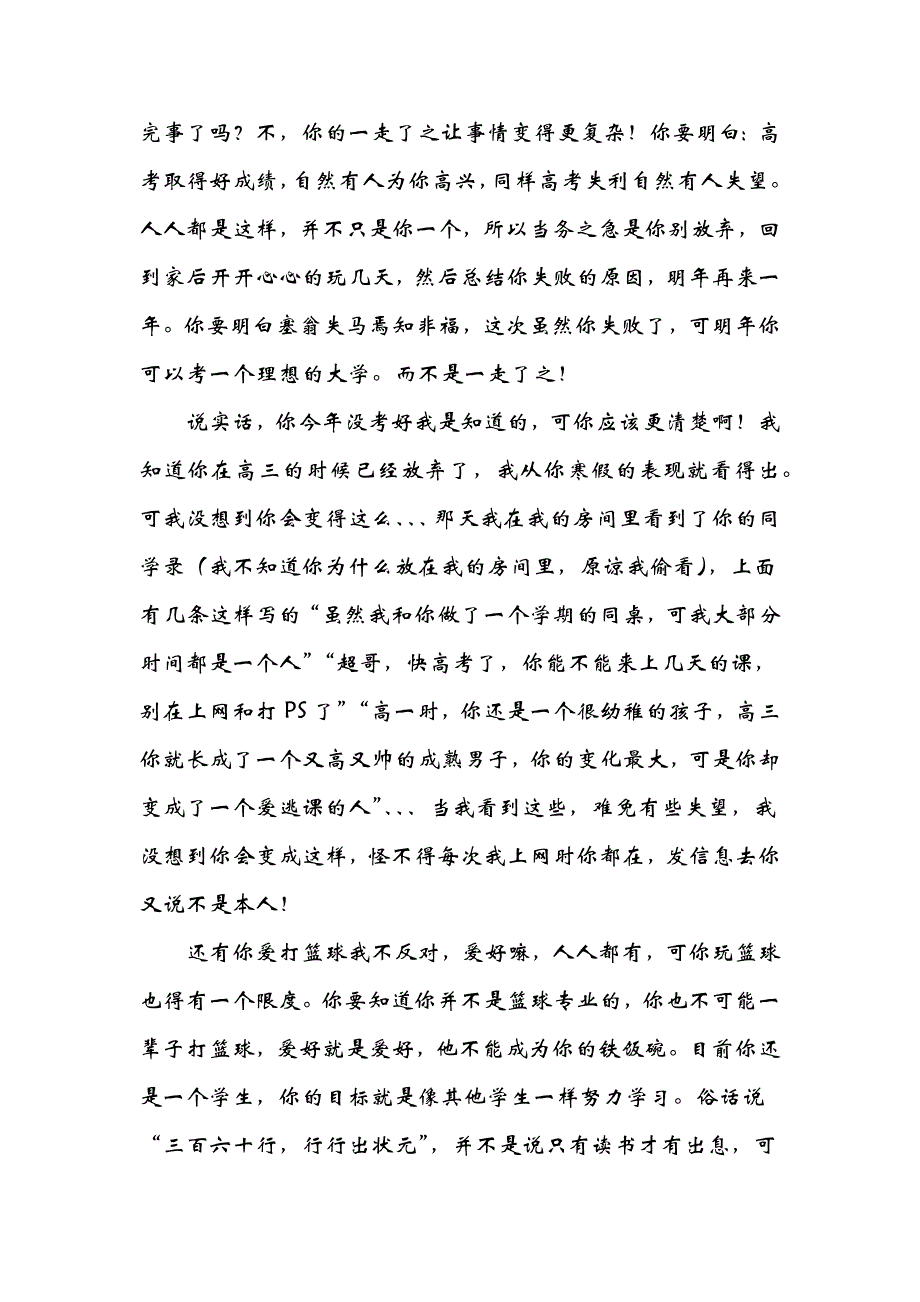 完事了吗？不，你的一走了之让事情变得更复杂！你要明白：高
考取得好成绩，自然有人为你高兴，同样高考失利自然有人失望。
人人都是这样，并不只是你一个，所以当务之急是你别放弃，回
到家后开开心心的玩几天，然后总结你失败的原因，明年再来一
年。你要明白塞翁失马焉知非福，这次虽然你失败了，可明年你
可以考一个理想的大学。而不是一走了之！
说实话，你今年没考好我是知道的，可你应该更清楚啊！我
知道你在高三的时候已经放弃了，我从你寒假的表现就看得出。
可我没想到你会变得这么、、、那天我在我的房间里看到了你的同
学录（我不知道你为什么放在我的房间里，原谅我偷看），上面
有几条这样写的“虽然我和你做了一个学期的同桌，可我大部分
时间都是一个人”“超哥，快高考了，你能不能来上几天的课，
别在上网和打 PS 了”“高一时，你还是一个很幼稚的孩子，高三
你就长成了一个又高又帅的成熟男子，你的变化最大，可是你却
变成了一个爱逃课的人”、、、当我看到这些，难免有些失望，我
没想到你会变成这样，怪不得每次我上网时你都在，发信息去你
又说不是本人！
还有你爱打篮球我不反对，爱好嘛，人人都有，可你玩篮球
也得有一个限度。你要知道你并不是篮球专业的，你也不可能一
辈子打篮球，爱好就是爱好，他不能成为你的铁饭碗。目前你还
是一个学生，你的目标就是像其他学生一样努力学习。俗话说
“三百六十行，行行出状元”，并不是说只有读书才有出息，可